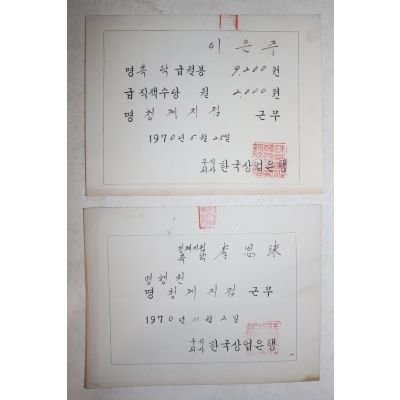 이 은 주
명 촉 탁 급 월봉 9,200 원
급 직책수당 월 2,000 원
명 청 계 지 점 근무
1970 년 5 월 25 일
주식회사 한국상업은행
청계지점
촉 탁 李 恩 珠
명 행 원
명 청 계 지 점 근무
1970 년 11 월 2 일
주식회사 한국상업은행